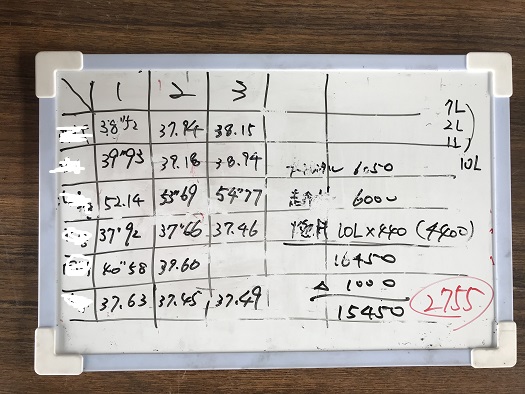 1 2 3
38"52 37.94 38.15
39"93 39.18 38.94
52.14 53"69 54"77
37"92 37"66 37.46
40"58 37.60
37.63 37.45 37.49
7L
2L
1L
10L
6050
6000
10L×440 (4400)
16450
△ 1000
15450
2755